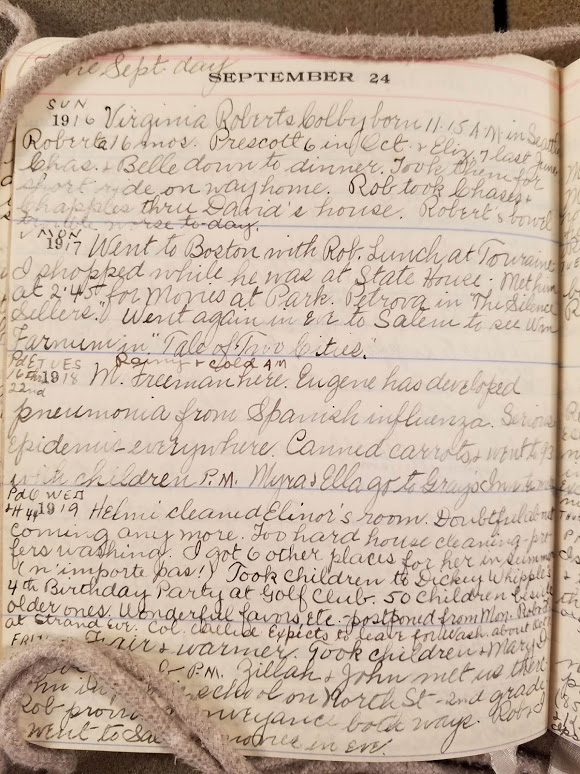 Fine Sept. day
SEPTEMBER 24
SUN
1916 Virginia Roberts Colby born 11.15 A M in Seattle
Roberta 16 mos. Prescott 6 in Oct. & Eliz. 7 last June
Chas. & Belle down to dinner. Took them for
short ride on way home. Rob took Chases &
Chapples thru David's house. Robert's bowel
trouble worse to-day.
MON
1917 Went to Boston with Rob. Lunch at Touraine
I shopped while he was at State House. Met him
at 2.45 for Movies at Park. Petrova in "The Silence
Sellers." Went again in eve to Salem to see Wm
Farnum in "Tale of Two Cities."
Rainy & cold AM
Pd E TUES
16th
22nd
1918 M. Freeman here. Eugene has developed
pneumonia from Spanish influenza. Serious
epidemic everywhere. Canned carrots & went to
with children P.M. Myra & Ella go to Grays Inn
Pd WED
1919 Helmi cleaned Elinor's room. Doubtful abt
coming any more. Too hard house cleaning - pre-
fers washing. I got 6 other places for her in summer
(n'importe pas!) Took children to Dickey Whipple's
4th Birthday Party at Golf Club. 50 children beside
older ones. Wonderful favors, etc. - postponed from Mon. Rob &
at Strand eve. Col. called Expects to leave for Wash. about
FRI
Fair & warmer. Took children & Mary
P.M. Zillah & John met us there
school on North St - 2nd grade
Rob conveyance both ways. Rob &
went to movies in eve.